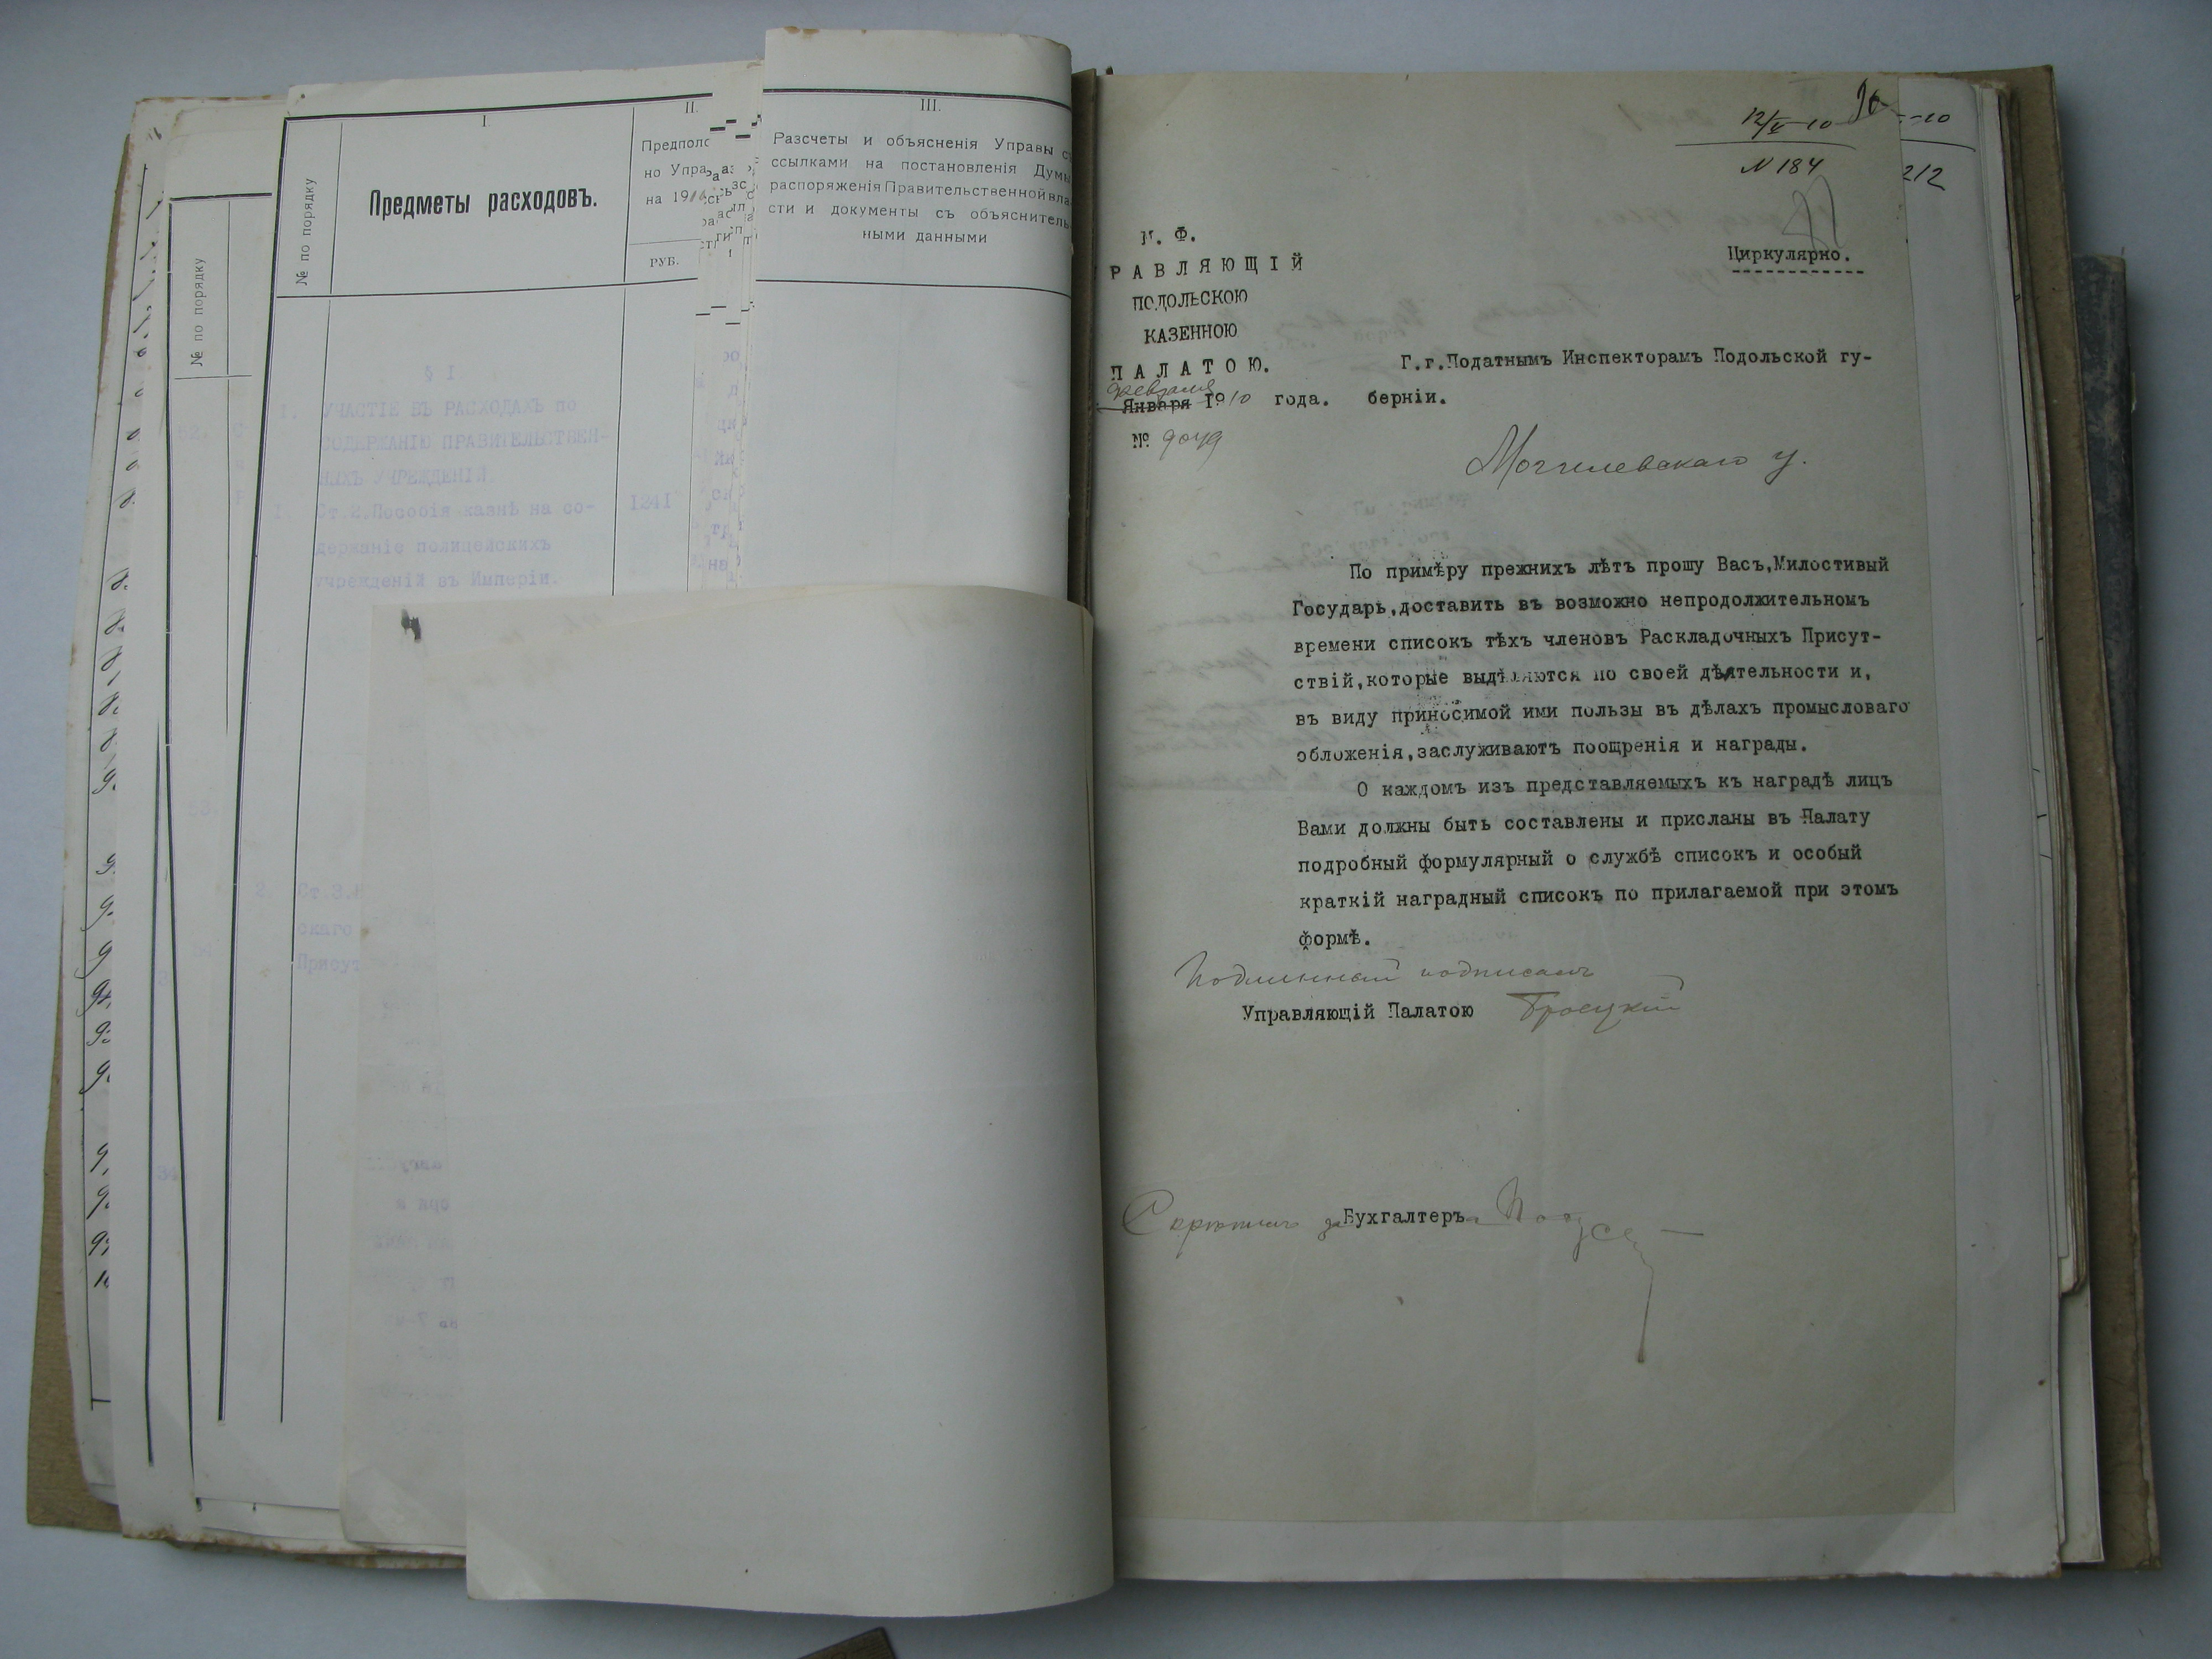 № по порядку
№ по порядку
I.
Предметы расходовъ.
II.
но Упра
на 1910
РУБ.
III.
Разсчеты и объясненія Управы
ссылками на постановленія Думы
распоряженія Правительственной вла
сти и документы съ объяснитель
ными данными
§ I
I. УЧАСТІЕ ВЪ РАСХОДАХЪ по
СОДЕРЖАНІЮ ПРАВИТЕЛЬСТВЕН-
НЫХЪ УЧРЕЖДЕНІЙ.
I. Ст.2.Пособія казнѣ на со- 1241
держаніе полицейскихъ
учрежденій въ Имперіи.
2. Ст.3.
скаго
Присут
12/V-10
N 184
-10
212
М. Ф.
РАВЛЯЮЩІЙ
ПОДОЛЬСКОЮ
КАЗЕННОЮ
ПАЛАТОЮ.
февраля
Января 1910 года.
№ 9049
Циркулярно.
Г.г.Податнымъ Инспекторамъ Подольской гу-
берніи.
Могилевскаго у.
По примѣру прежнихъ лѣтъ прошу Васъ,Милостивый
Государь,доставить въ возможно непродолжительномъ
времени списокъ тѣхъ членовъ Раскладочныхъ Присут-
ствій,которые выдѣляются по своей дѣятельности и,
въ виду приносимой ими пользы въ дѣлахъ промысловаго
обложенія,заслуживаютъ поощренія и награды.
О каждомъ изъ представляемыхъ къ наградѣ лицъ
Вами должны быть составлены и присланы въ Палату
подробный формулярный о службѣ списокъ и особый
краткій наградный списокъ по прилагаемой при этомъ
формѣ.
Подлинный подписалъ
Управляющій Палатою Троцкій
за Бухгалтера